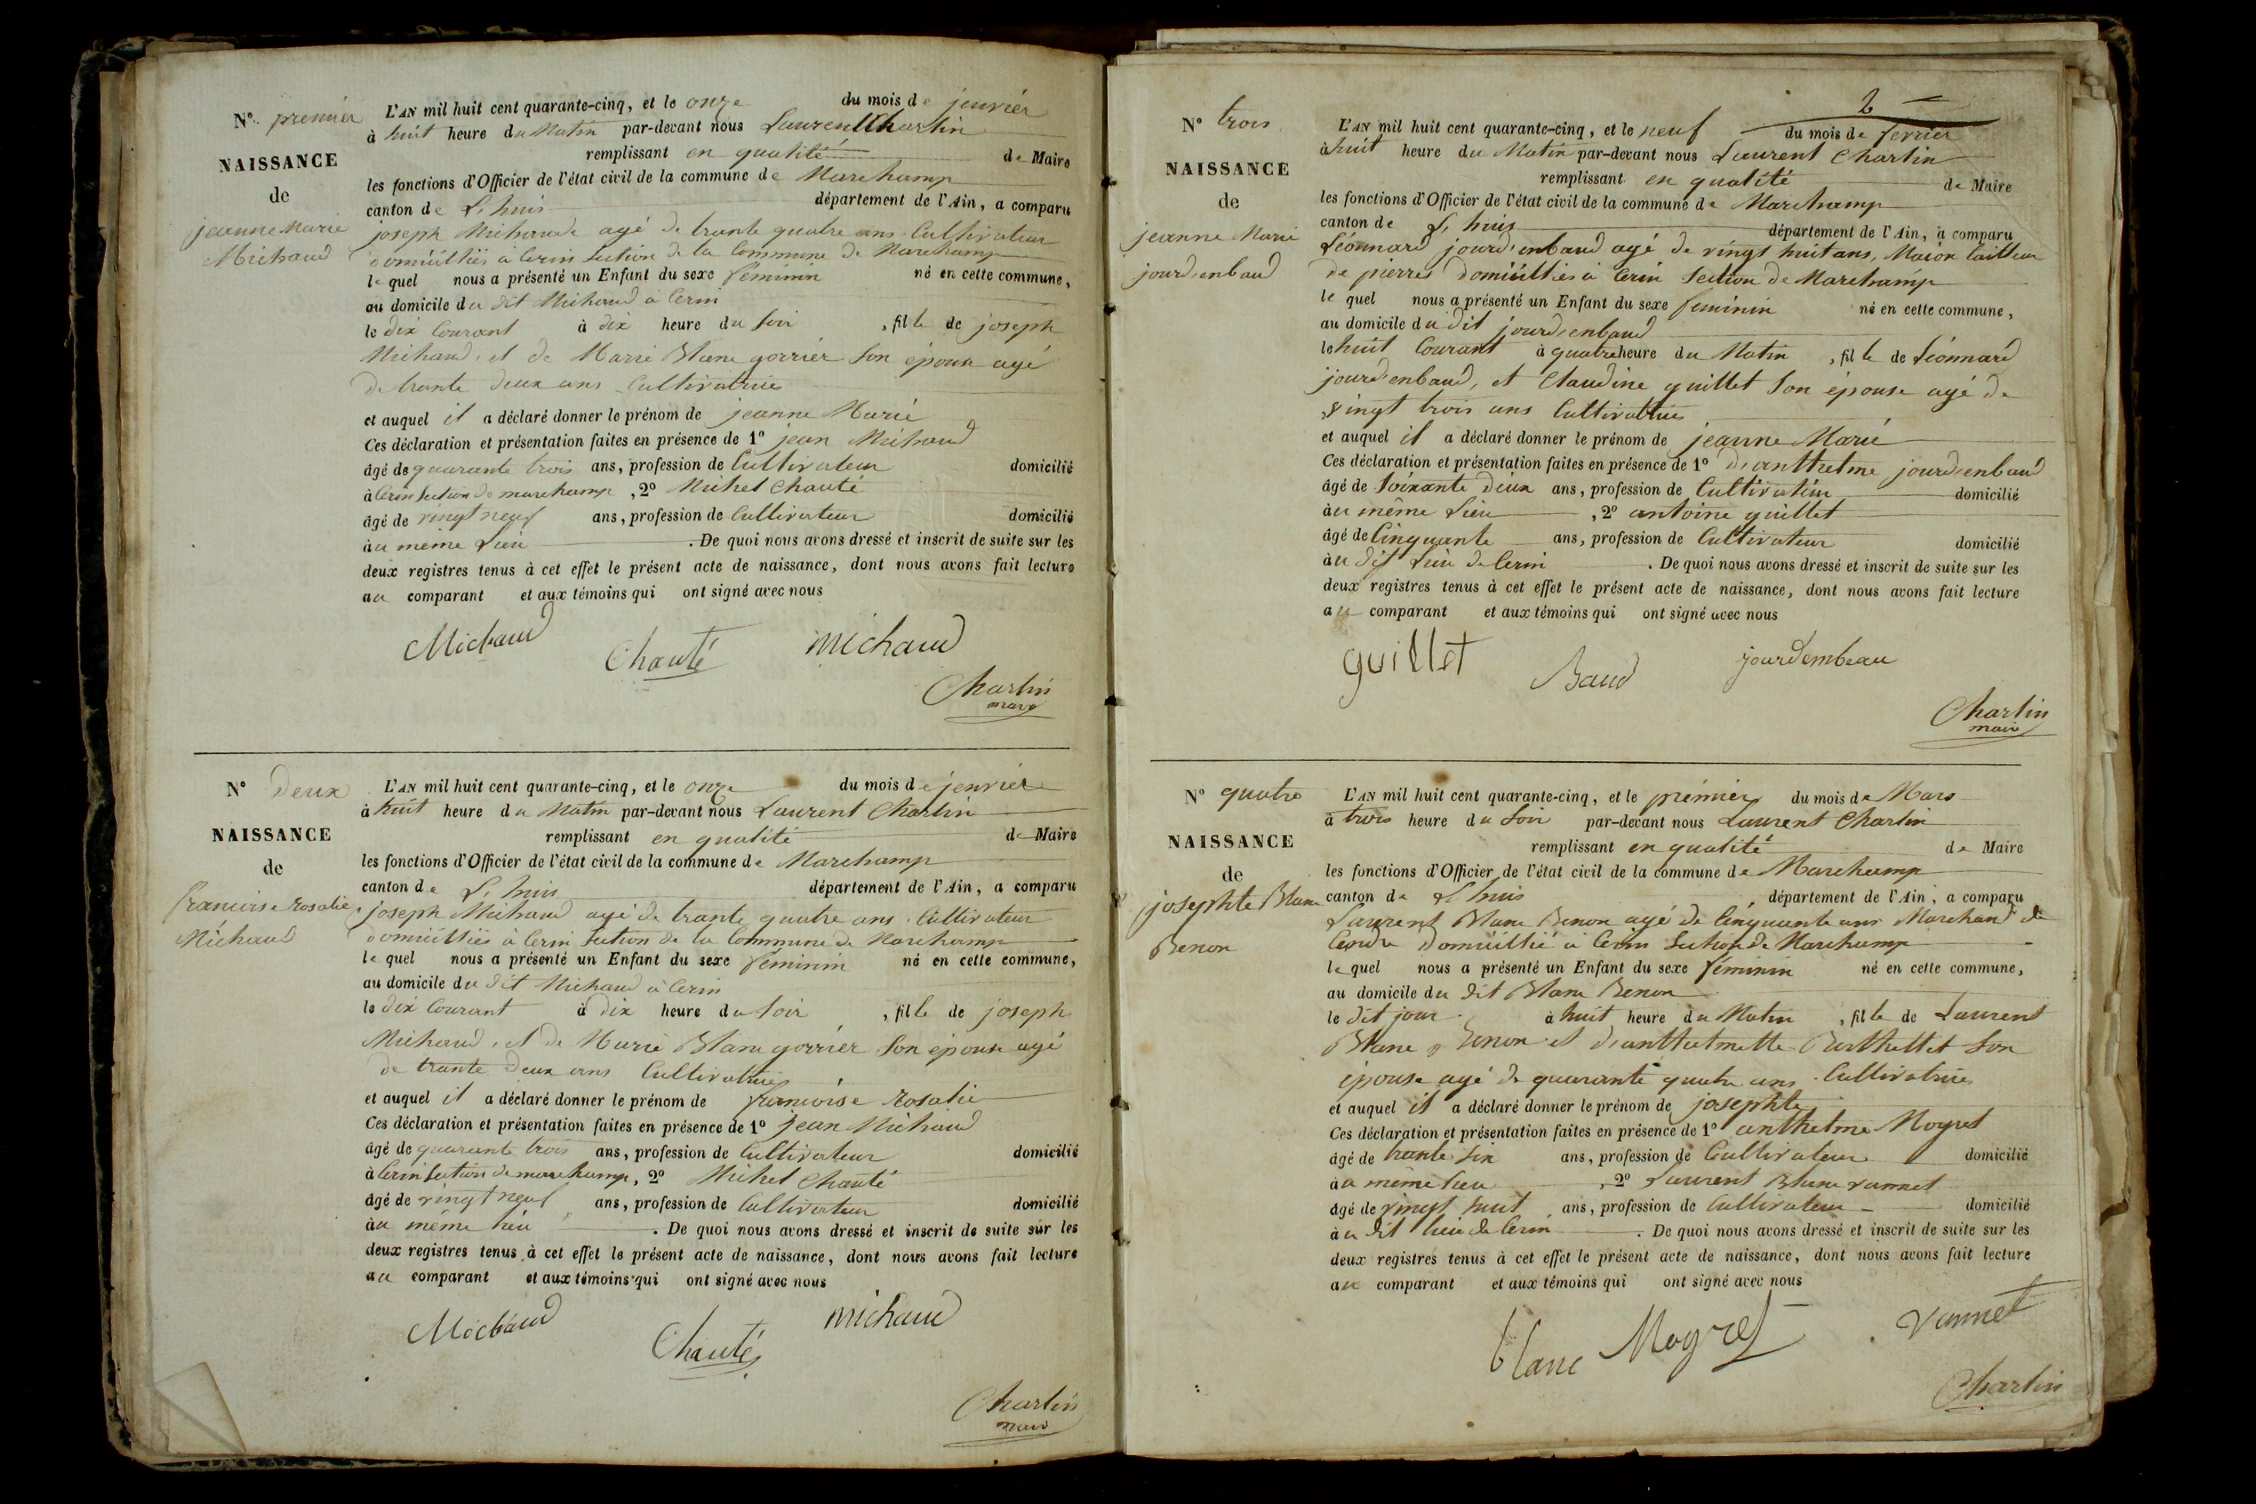 N° premier
NAISSANCE
de
jeanne Marie
Michaud
L'AN mil huit cent quarante-cinq, et le onze du mois de jenvriér
à huit heure du Matin par-devant nous Laurent Charlin
remplissant en qualité de Maire
les fonctions d'Officier de l'état civil de la commune de Marchamp
canton de L'huis département de l'Ain, a comparu
joseph Michaud agé de trante quatre ans Cultivateur
domiciliés à Cerin Section de la Commune de Marchamp
le quel nous a présenté un Enfant du sexe féminin né en cette commune,
au domicile du dit Michaud à Cerin
le dix Courant à dix heure du Soir , fille de joseph
Michaud, et de Marie Blanc gorriér Son épouse agé
de trante deux ans Cultivatrice
et auquel il a déclaré donner le prénom de jeanne Marie
Ces déclaration et présentation faites en présence de 1° jean Michaud
âgé de quarante trois ans, profession de Cultivateur domicilié
à Cerin Section de marchamp , 2° Michel Chanté
âgé de vingt neuf ans, profession de Cultivateur domicilié
au même Lieu . De quoi nous avons dressé et inscrit de suite sur les
deux registres tenus à cet effet le présent acte de naissance, dont nous avons fait lecture
au comparant et aux témoins qui ont signé avec nous
Michaud Chanté michaud
Charlin
maire
N° deux
NAISSANCE
de
francoise rosalie
Michaud
L'AN mil huit cent quarante-cinq, et le onze du mois de jenvriér
à huit heure du Matin par-devant nous Laurent Charlin
remplissant en qualité de Maire
les fonctions d'Officier de l'état civil de la commune de Marchamp
canton de L'huis département de l'Ain, a comparu
joseph Michaud agé de trante quatre ans Cultivateur
domiciliés à Cerin Section de la Commune de Marchamp
le quel nous a présenté un Enfant du sexe féminin né en cette commune,
au domicile du dit Michaud à Cerin
le dix Courant à dix heure du Soir , fille de joseph
Michaud, et de Marie Blanc gorriér Son épouse agé
de trante deux ans Cultivatrice
et auquel il a déclaré donner le prénom de francoise rosalie
Ces déclaration et présentation faites en présence de 1° jean Michaud
âgé de quarante trois ans, profession de Cultivateur domicilié
à Cerin Section de marchamp, 2° Michel Chanté
âgé de vingt neuf ans, profession de Cultivateur domicilié
au même lieu . De quoi nous avons dressé et inscrit de suite sur les
deux registres tenus à cet effet le présent acte de naissance, dont nous avons fait lecture
au comparant et aux témoins qui ont signé avec nous
Michaud Chanté michaud
Charlin
maire
2
N° trois
NAISSANCE
de
jeanne Marie
jourdenbaud
L'AN mil huit cent quarante-cinq, et le neuf du mois de fevrier
à huit heure du Matin par-devant nous Laurent Charlin
remplissant en qualité de Maire
les fonctions d'Officier de l'état civil de la commune de Marchamp
canton de L'huis département de l'Ain, a comparu
Léonnard jourdenbaud agé de vingt huit ans, Maçon tailleur
de pierres domiciliés à Cerin Section de Marchamp
le quel nous a présenté un Enfant du sexe feminin né en cette commune,
au domicile du dit jourdenbaud
le huit Courant à quatre heure du Matin , fille de Léonnard
jourdenbaud, et Claudine guillet Son épouse agé de
vingt trois ans Cultivatrice
et auquel il a déclaré donner le prénom de jeanne Marie
Ces déclaration et présentation faites en présence de 1° d'anthelme jourdenbaud
âgé de Soixante deux ans, profession de Cultivateur domicilié
au même Lieu , 2° antoine guillet
âgé de Cinquante ans, profession de Cultivateur domicilié
au dit Lieu de Cerin . De quoi nous avons dressé et inscrit de suite sur les
deux registres tenus à cet effet le présent acte de naissance, dont nous avons fait lecture
au comparant et aux témoins qui ont signé avec nous
guillet Baud jourdembeau
Charlin
maire
N° quatre
NAISSANCE
de
josephte Blanc
Benon
L'AN mil huit cent quarante-cinq, et le premier du mois de Mars
à trois heure du Soir par-devant nous Laurent Charlin
remplissant en qualité de Maire
les fonctions d'Officier de l'état civil de la commune de Marchamp
canton de L'huis département de l'Ain, a comparu
Laurent Blanc Benon agé de Cinquante ans Marchand de
Cendre domicilié à Cerin Section de Marchamp
le quel nous a présenté un Enfant du sexe féminin né en cette commune,
au domicile du dit Blanc Benon
le dit jour à huit heure du Matin , fille de Laurent
Blanc Benon et d'anthelmette Berthellet Son
épouse agé de quarante quatre ans Cultivatrice
et auquel il a déclaré donner le prénom de josephte
Ces déclaration et présentation faites en présence de 1° anthelme Mogret
âgé de trante Six ans, profession de Cultivateur domicilié
au même lieu , 2° Laurent Blanc vannet
âgé de vingt huit ans, profession de Cultivateur domicilié
au dit lieu de Cerin . De quoi nous avons dressé et inscrit de suite sur les
deux registres tenus à cet effet le présent acte de naissance, dont nous avons fait lecture
au comparant et aux témoins qui ont signé avec nous
blanc Mogret vannet
Charlin